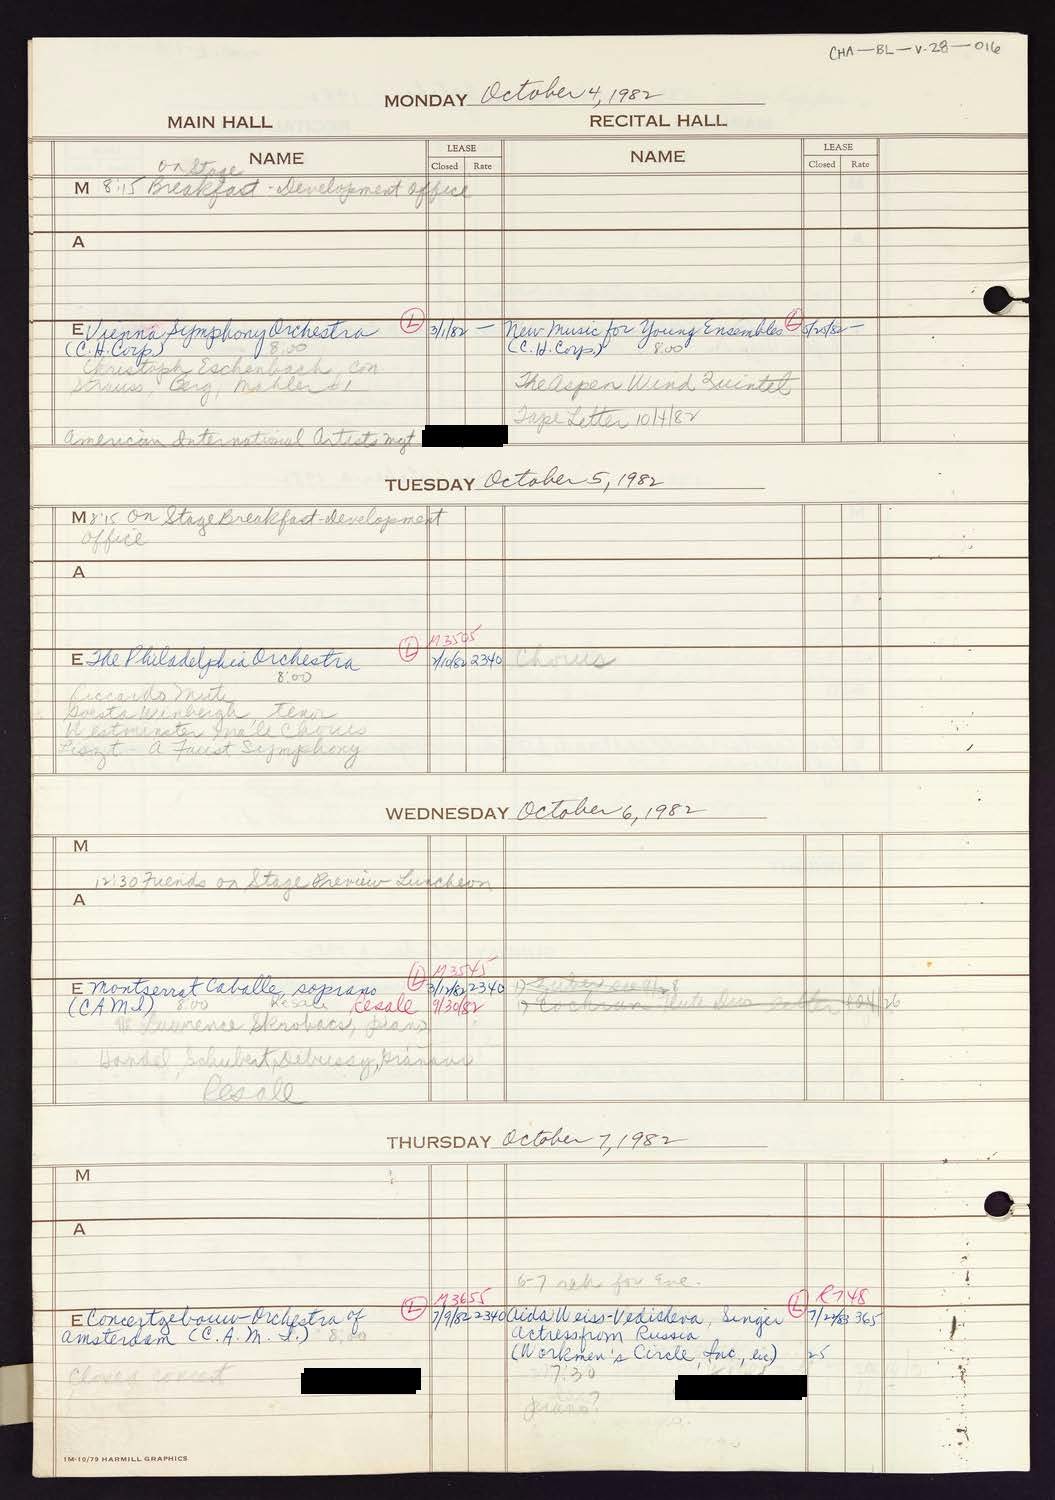 CHA-BL-V.28-016
MONDAY October 4, 1982
MAIN HALL RECITAL HALL
NAME LEASE NAME LEASE
Closed Rate Closed Rate
on Stage
M 8:15 Breakfast - Development Office
A
E Vienna Symphony Orchestra (L) 3/1/82 — New Music for Young Ensembles (L) —
(C.H. Corp.) 8:00 (C.H. Corp.) 8:00
Christoph Eschenbach, con
Strauss, Berg, Mahler #1 The Aspen Wind Quintet
Tape Letter 10/4/82
American International Artists Mgt
TUESDAY October 5, 1982
M 8:15 On Stage Breakfast-Development
Office
A
M3505
E The Philadelphia Orchestra (L) 2340 Chorus
8:00
Riccardo Muti
Gosta Winbergh tenor
Westminster Male Chorus
Liszt - A Faust Symphony
WEDNESDAY October 6, 1982
M
12:30 Friends on Stage Preview Luncheon
A
M3545
E Montserrat Caballe, soprano (L) 3/12/82 2340
(CAMI) 8:00 Resale Resale 9/30/82 Cochran Flute Duo
Lawrence Skrobacs, piano
Handel, Schubert, Debussy,
Resale
THURSDAY October 7, 1982
M
A
5-7 reh for Eve.
M3655 R748
E Concertgebouw-Orchestra of (L) 7/9/82 2340 Aida Weiss-Vedisheva, Singer (L) 365
Amsterdam (C.A.M.I.) 8:00 Actress from Russia
(Workmen's Circle, Inc, lic) 25
7:30
piano?
1M-10/79 HARMILL GRAPHICS